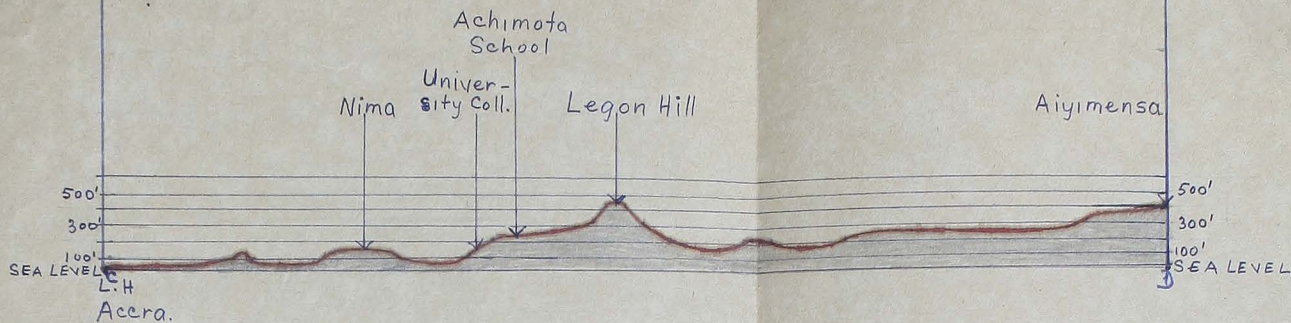 Achimota
School
Univer-
sity Coll.
Nima
Legon Hill
Aiyimensa
500'
300'
100'
SEA LEVEL
C
L.H
Accra.
500'
300'
100'
SEA LEVEL
D